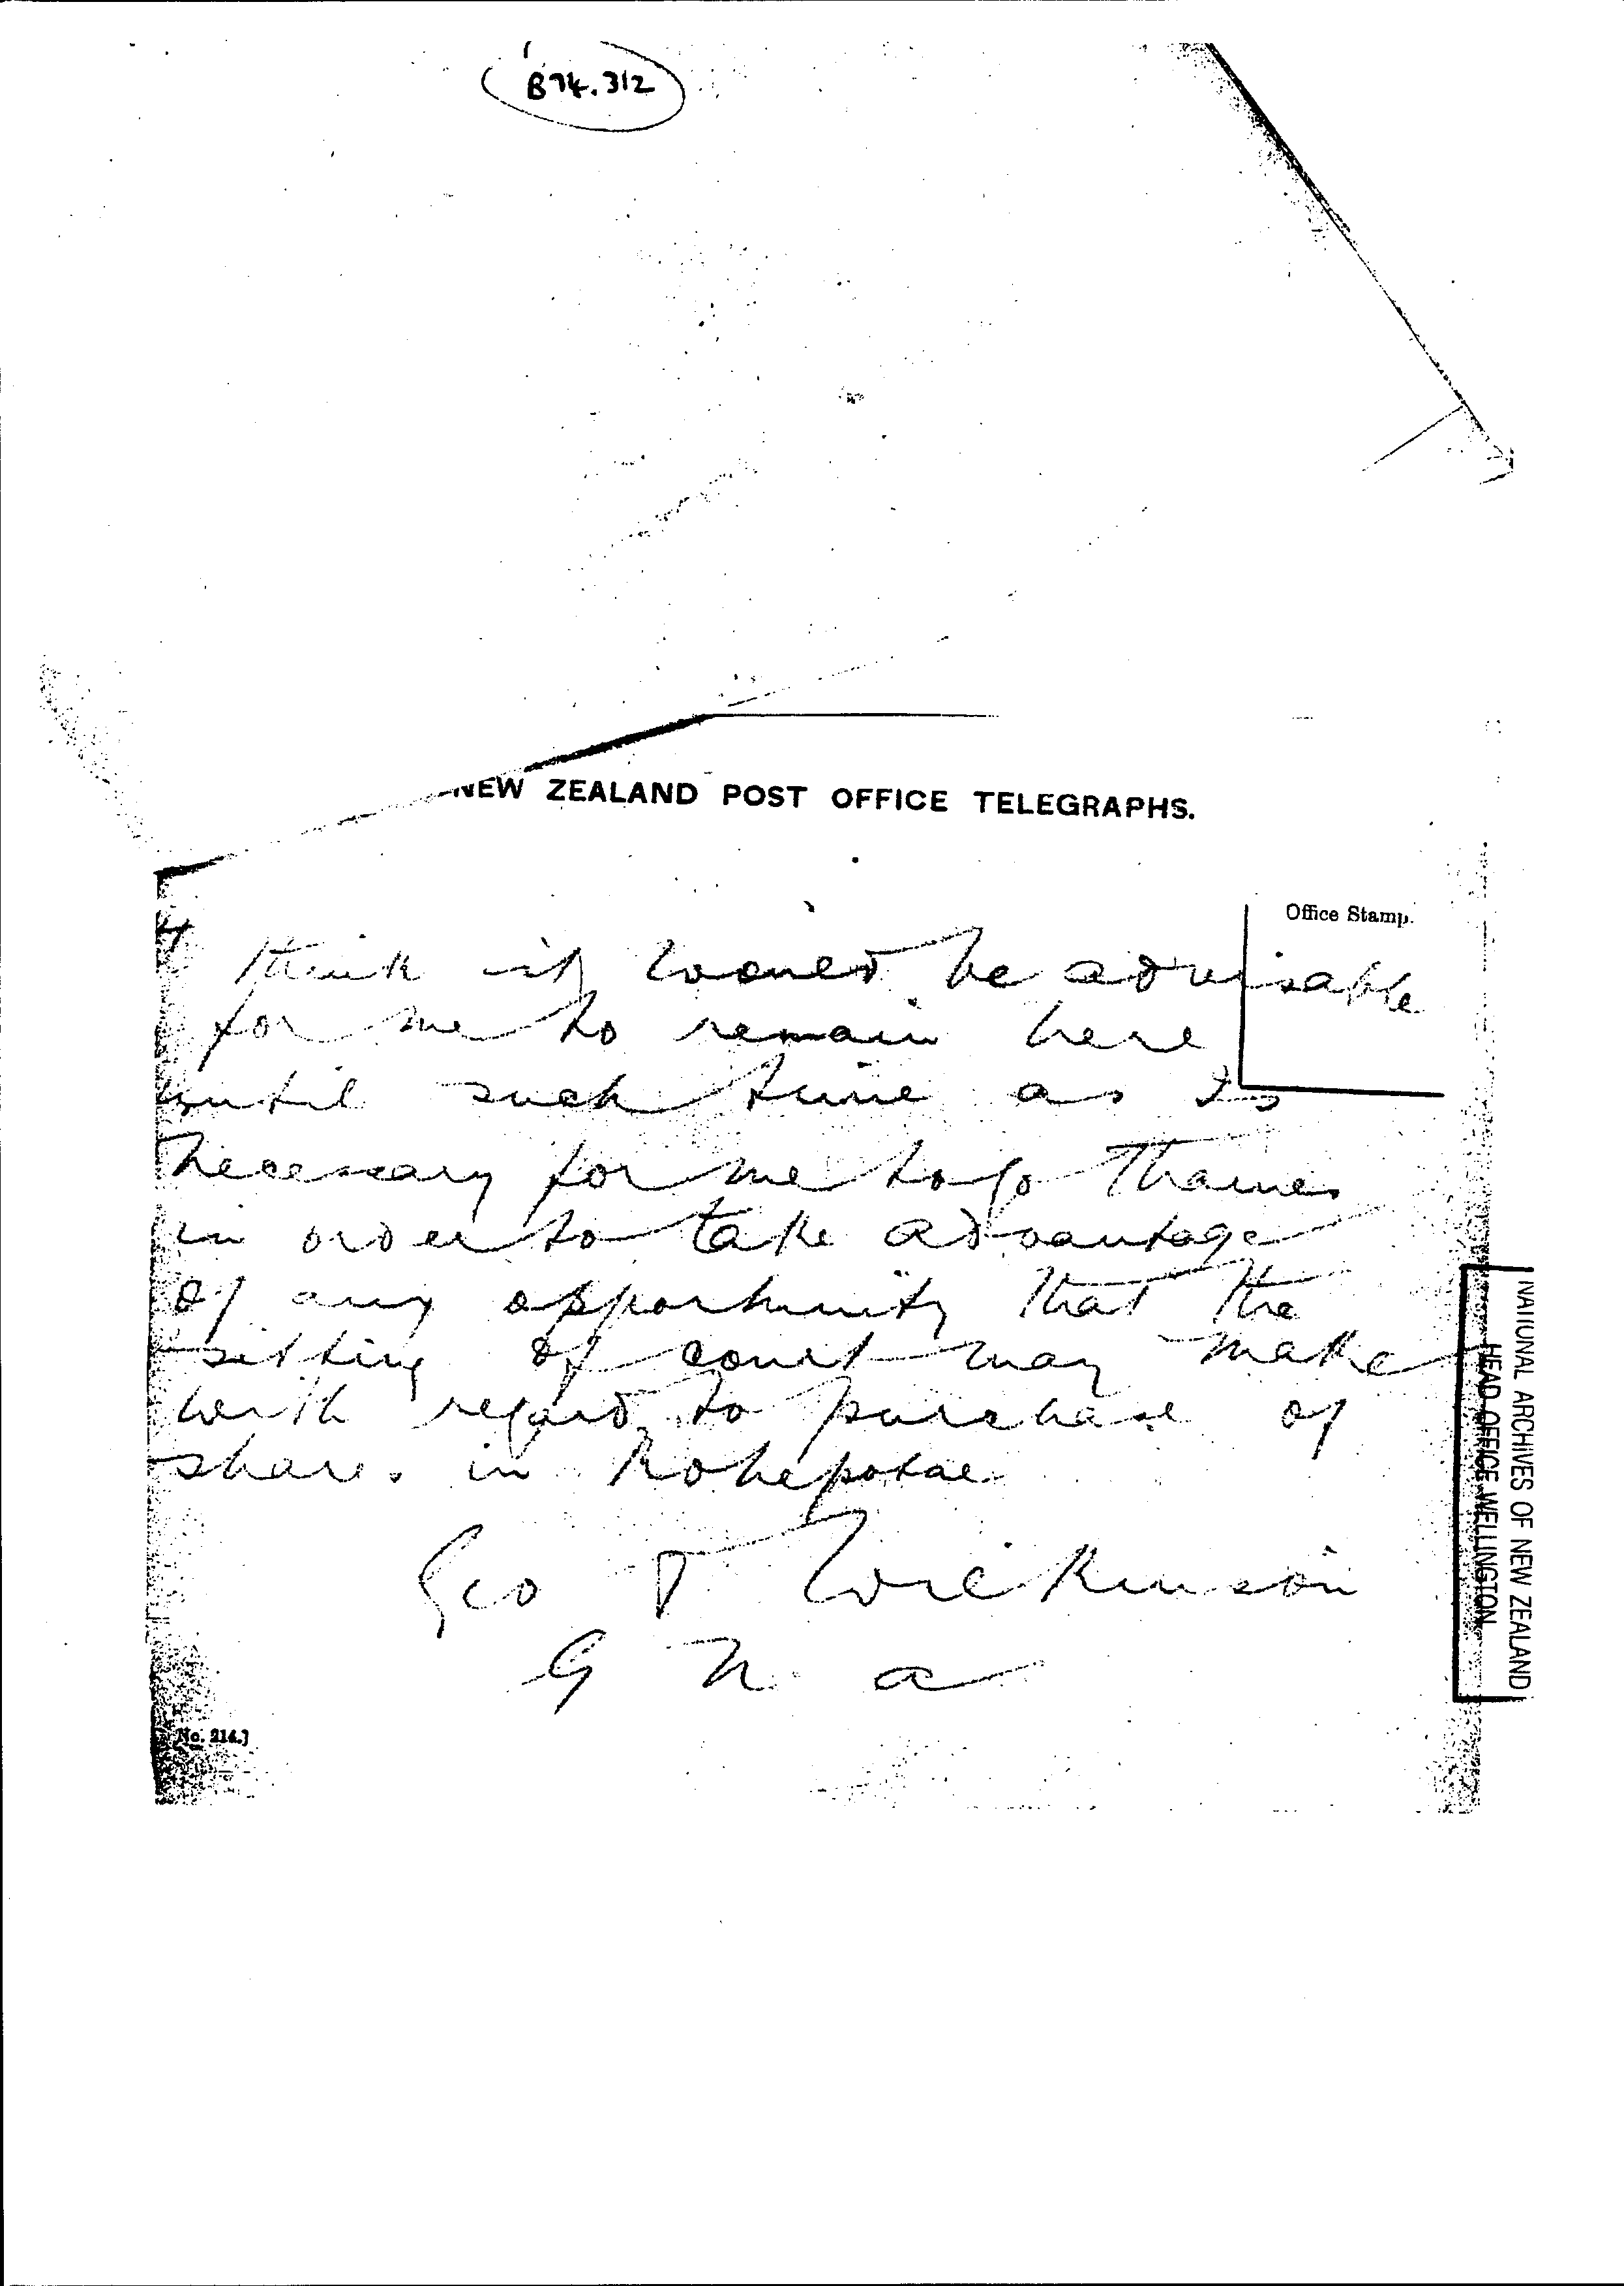 B74.312
NEW ZEALAND POST OFFICE TELEGRAPHS.
Office Stamp.
I think it would be advisable
for me to remain here
until such time as is
necessary for me to go Thames
in order to take advantage
of any opportunity that the
sitting of court may make
with regard to purchase of
shares in Rohepotae
Geo T Wilkinson
G N a
No. 214.]
NATIONAL ARCHIVES OF NEW ZEALAND
HEAD OFFICE WELLINGTON